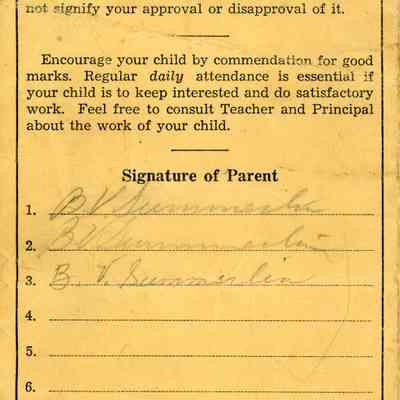 not signify your approval or disapproval of it.
Encourage your child by commendation for good
marks. Regular daily attendance is essential if
your child is to keep interested and do satisfactory
work. Feel free to consult Teacher and Principal
about the work of your child.
Signature of Parent
1. B V Summerlin
2. B V Summerlin
3. B. V. Summerlin
4.
5.
6.